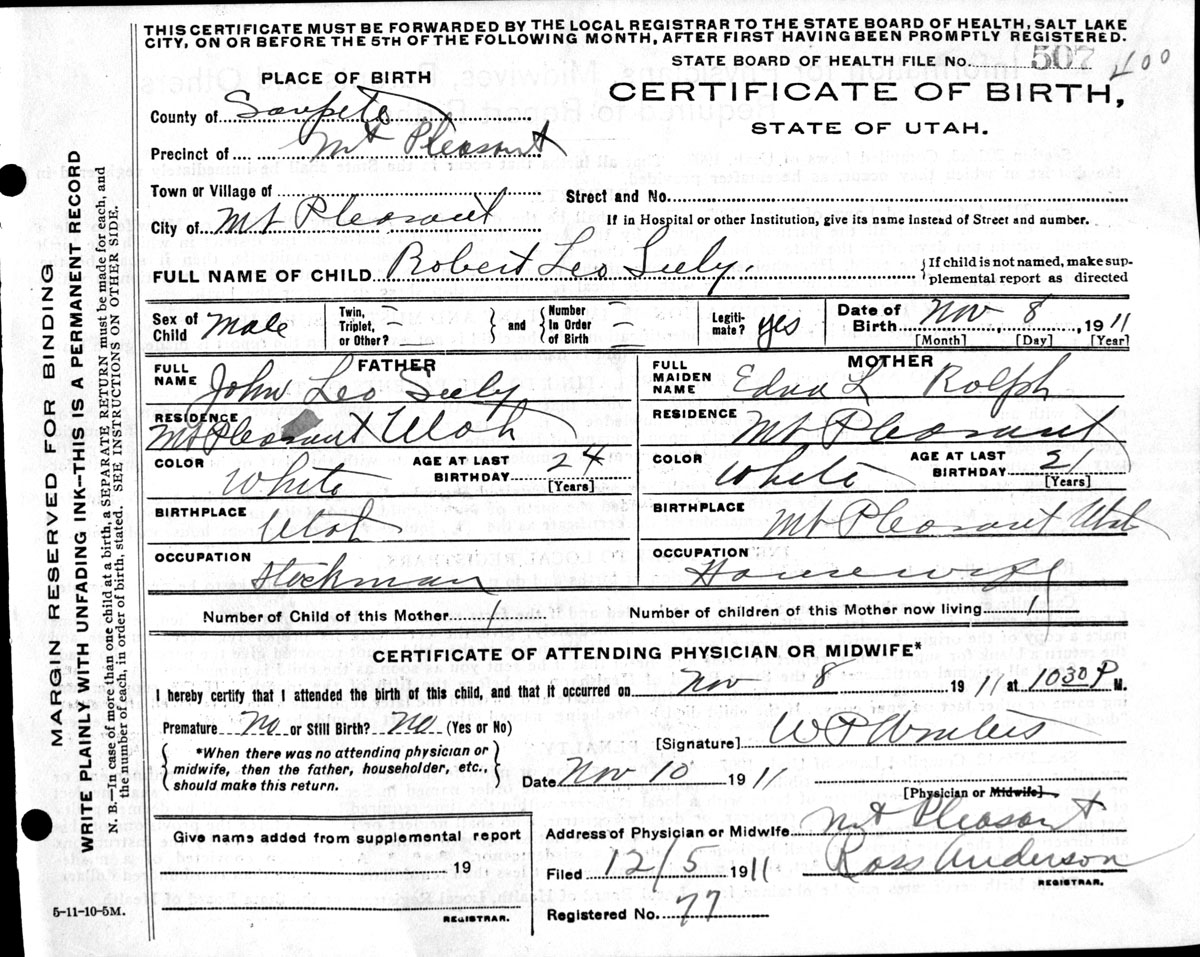 THIS CERTIFICATE MUST BE FORWARDED BY THE LOCAL REGISTRAR TO THE STATE BOARD OF HEALTH, SALT LAKE
CITY, ON OR BEFORE THE 5TH OF THE FOLLOWING MONTH, AFTER FIRST HAVING BEEN PROMPTLY REGISTERED.
STATE BOARD OF HEALTH FILE No. 507 400
PLACE OF BIRTH
CERTIFICATE OF BIRTH,
STATE OF UTAH.
County of Sanpete
Precinct of Mt Pleasant
Town or Village of
Street and No.
City of Mt Pleasant
If in Hospital or other Institution, give its name instead of Street and number.
FULL NAME OF CHILD Robert Leo Seely.
{If child is not named, make sup-
plemental report as directed
Sex of Child Male
Twin, Triplet, or Other? –
} and {
Number In Order of Birth –
Legiti- mate? yes
Date of Birth Nov 8, 1911
[Month] [Day] [Year]
FATHER
FULL NAME John Leo Seely
MOTHER
FULL MAIDEN NAME Edna L Rolph
RESIDENCE Mt Pleasant Utah
RESIDENCE Mt Pleasant
COLOR White
AGE AT LAST BIRTHDAY 24 [Years]
COLOR White
AGE AT LAST BIRTHDAY 21 [Years]
BIRTHPLACE Utah
BIRTHPLACE Mt Pleasant Utah
OCCUPATION Stockman
OCCUPATION Housewife
Number of Child of this Mother 1
Number of children of this Mother now living 1
CERTIFICATE OF ATTENDING PHYSICIAN OR MIDWIFE*
I hereby certify that I attended the birth of this child, and that it occurred on Nov 8 1911 at 1030 P M.
Premature No or Still Birth? No (Yes or No)
{*When there was no attending physician or
midwife, then the father, householder, etc.,
should make this return.}
[Signature] W P
Date Nov 10 1911
[Physician or Midwife]
Give name added from supplemental report
19
REGISTRAR.
Address of Physician or Midwife Mt Pleasant
Filed 12/5 1911 Ross Anderson
REGISTRAR.
Registered No. 77
5-11-10-5M.
MARGIN RESERVED FOR BINDING
WRITE PLAINLY WITH UNFADING INK--THIS IS A PERMANENT RECORD
N. B.--In case of more than one child at a birth, a SEPARATE RETURN must be made for each, and
the number of each, in order of birth, stated. SEE INSTRUCTIONS ON OTHER SIDE.